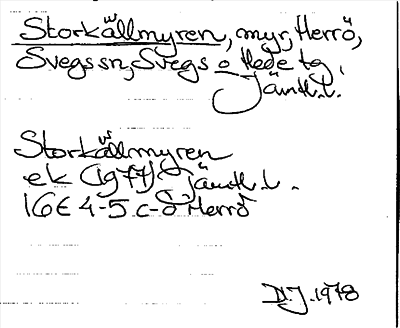 Storkällmyren, myr, Herrö,
Svegs sn, Svegs o Hede tg,
Jämtl.l.
Storkällmyren
ek (1977) Jämtl.l.
16E 4-5 c-d Herrö
D.J. 1978